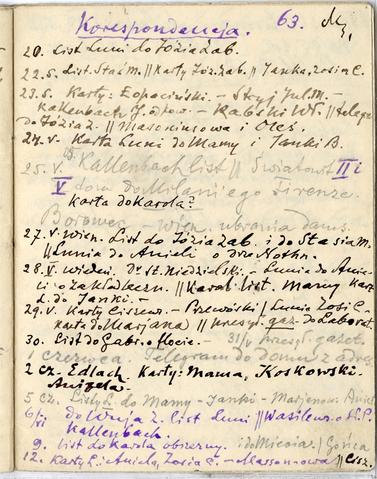 Korespondencja. 63.
20. List Luni do Józia Zab.
22.5. List. Staś M. || Karty Józ. Zab. || Janka, Zosia C.
23.5. Karty: Łopaciński. - Stryj Jul. M. -
Kallenbach J. odpow. - Rabski Wł. ||
do Józia Z. || Masoniusowa i Oleś.
24. V. Karta Luni do Mamy i Janki B.
25. V. Kallenbach list || Światowit II i
V dom do Milani ego Firenze.
Karta do Karola?
Borowez. - Wien. ubrania
27. V. Wien. List do Józia Zab. i do Stasia M.
|| Lunia do Anieli o
28. V wieden. Dr. St. Niedzielski. - Lunia do Anie-
li o Zakł || Karol list. Mamy Kart
L. do Janki. -
29. V. Karty Ciszew. - Przewóski / Lunia Zosi C. -
Karta do Marjana || przesył. gaz. do Laborat.
30. List do Gabr. o flocie. - 31/V przesył. gazet.
1 czerwca. Telegram do domu z adres
2 cz. Edlach. Karty: Mama, Koskowski.
Aniela -
5 cz. Listy L. do Mamy - Janki - Marjenowa Aniel
6/VI do Wuja Z. list Luni || Wasilew.
Kallenbach.
9. list do Karola obszerny. i do Micoia. / Gorica
12. Karty L. : Aniela, Zosia C. - Massonowa || Cisz.